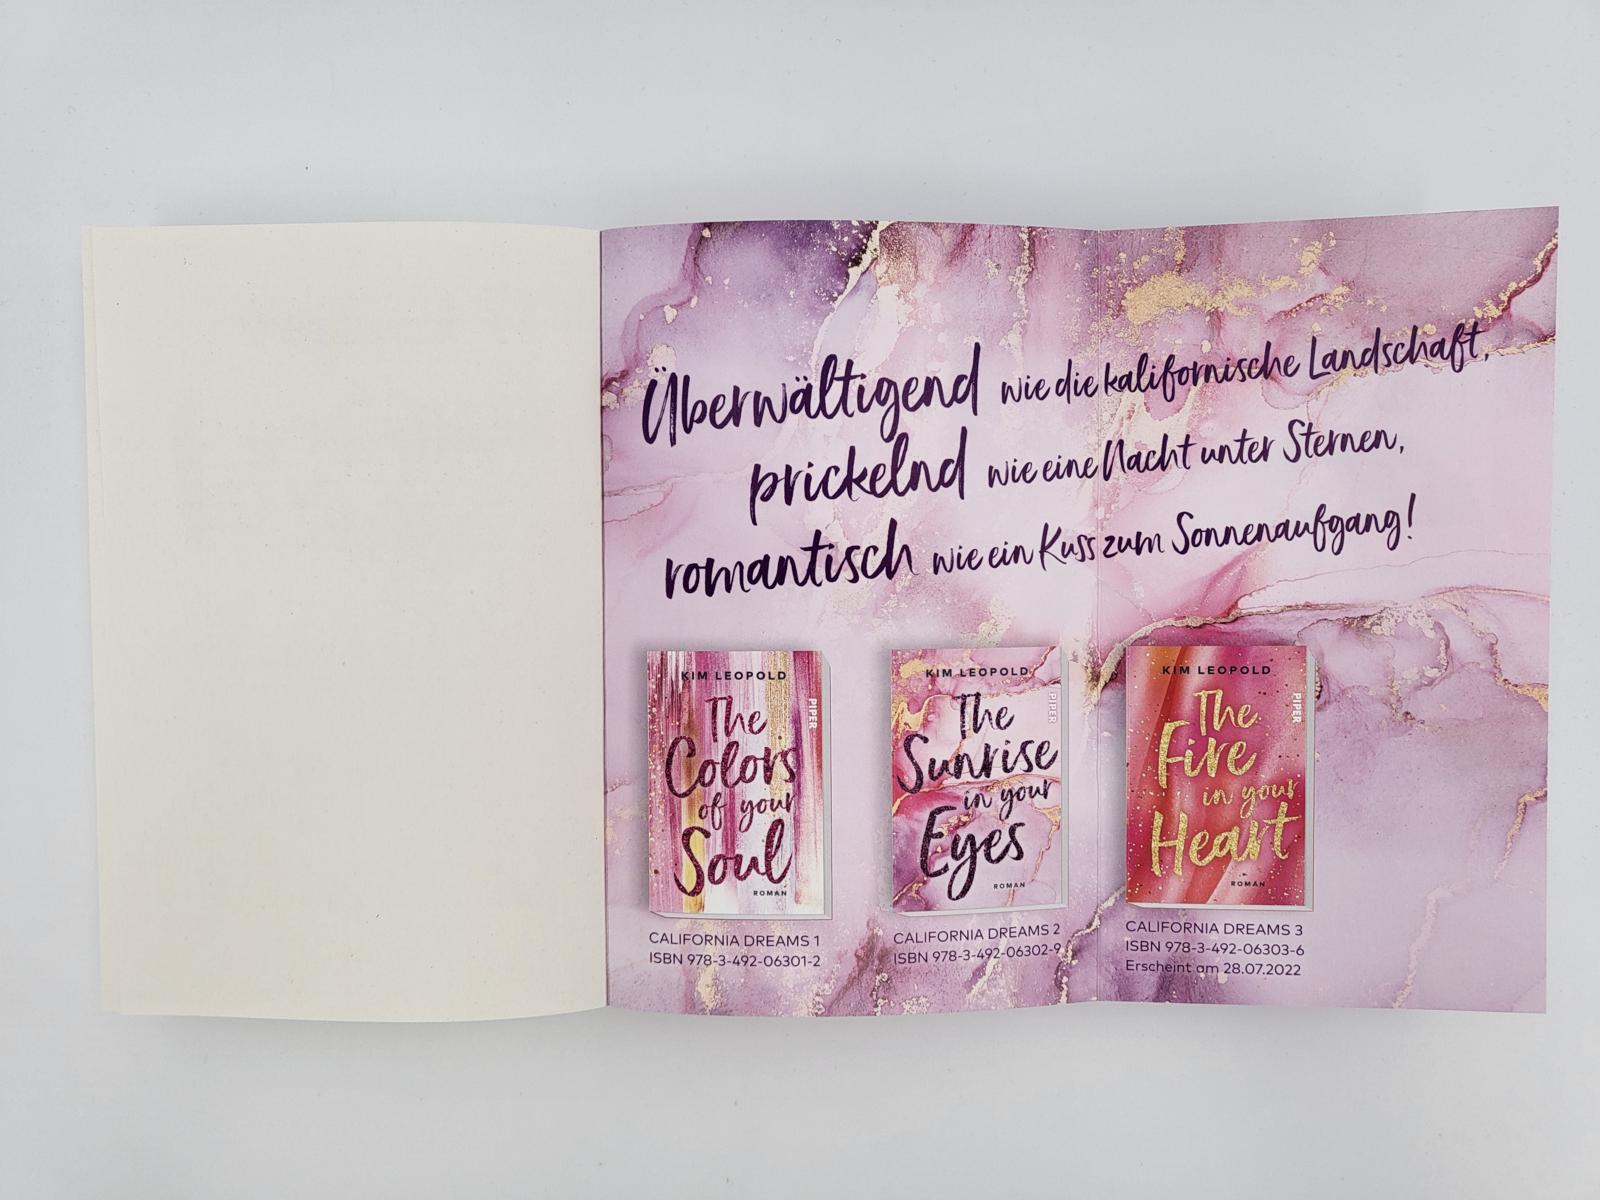 Überwältigend wie die kalifornische Landschaft,
prickelnd wie eine Nacht unter Sternen,
romantisch wie ein Kuss zum Sonnenaufgang!
KIM LEOPOLD
The
Colors
of your
Soul
ROMAN
PIPER
CALIFORNIA DREAMS 1
ISBN 978-3-492-06301-2
KIM LEOPOLD
The
Sunrise
in your
Eyes
ROMAN
PIPER
CALIFORNIA DREAMS 2
ISBN 978-3-492-06302-9
KIM LEOPOLD
The
Fire
in your
Heart
ROMAN
PIPER
CALIFORNIA DREAMS 3
ISBN 978-3-492-06303-6
Erscheint am 28.07.2022